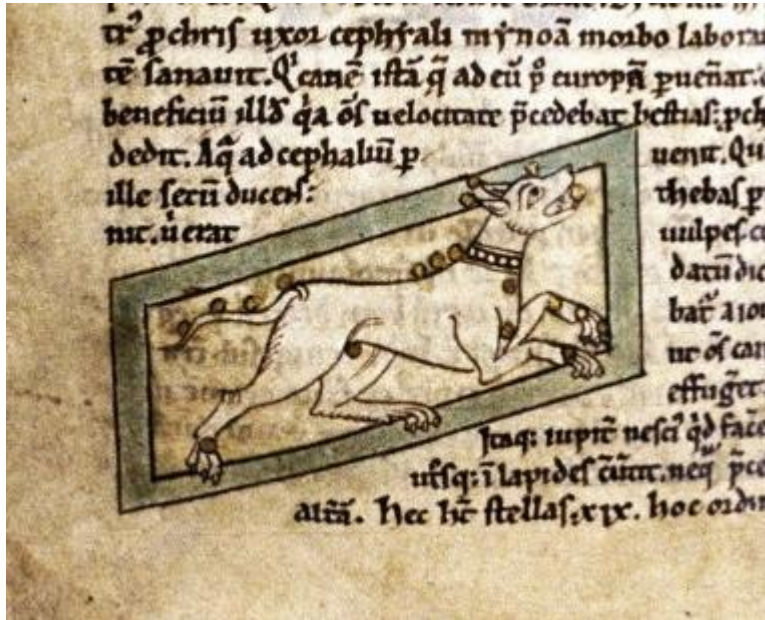 p chris uxor cephali mynoā morbo labora
tē sanauit. Q' canē istā q̄ ad eū p̊ europā puenat.
beneficiū illd' q̇a oīs uelocitate p̄cedebat bestias: pch
dedit. Aq̄ ad cephalum p uenit. Qu
ille secū ducens: thebas p
nit. ů erat uulpes c
datū dic
bat' a iou
ut oīs can
effug̃et.
Itaq: iupit̃ nesci' q̇d face
ut̃sq: ī lapides cūtit. neq' p̄ce
alt̃ā. hec ht̄ stellas. xix. hoc ordin